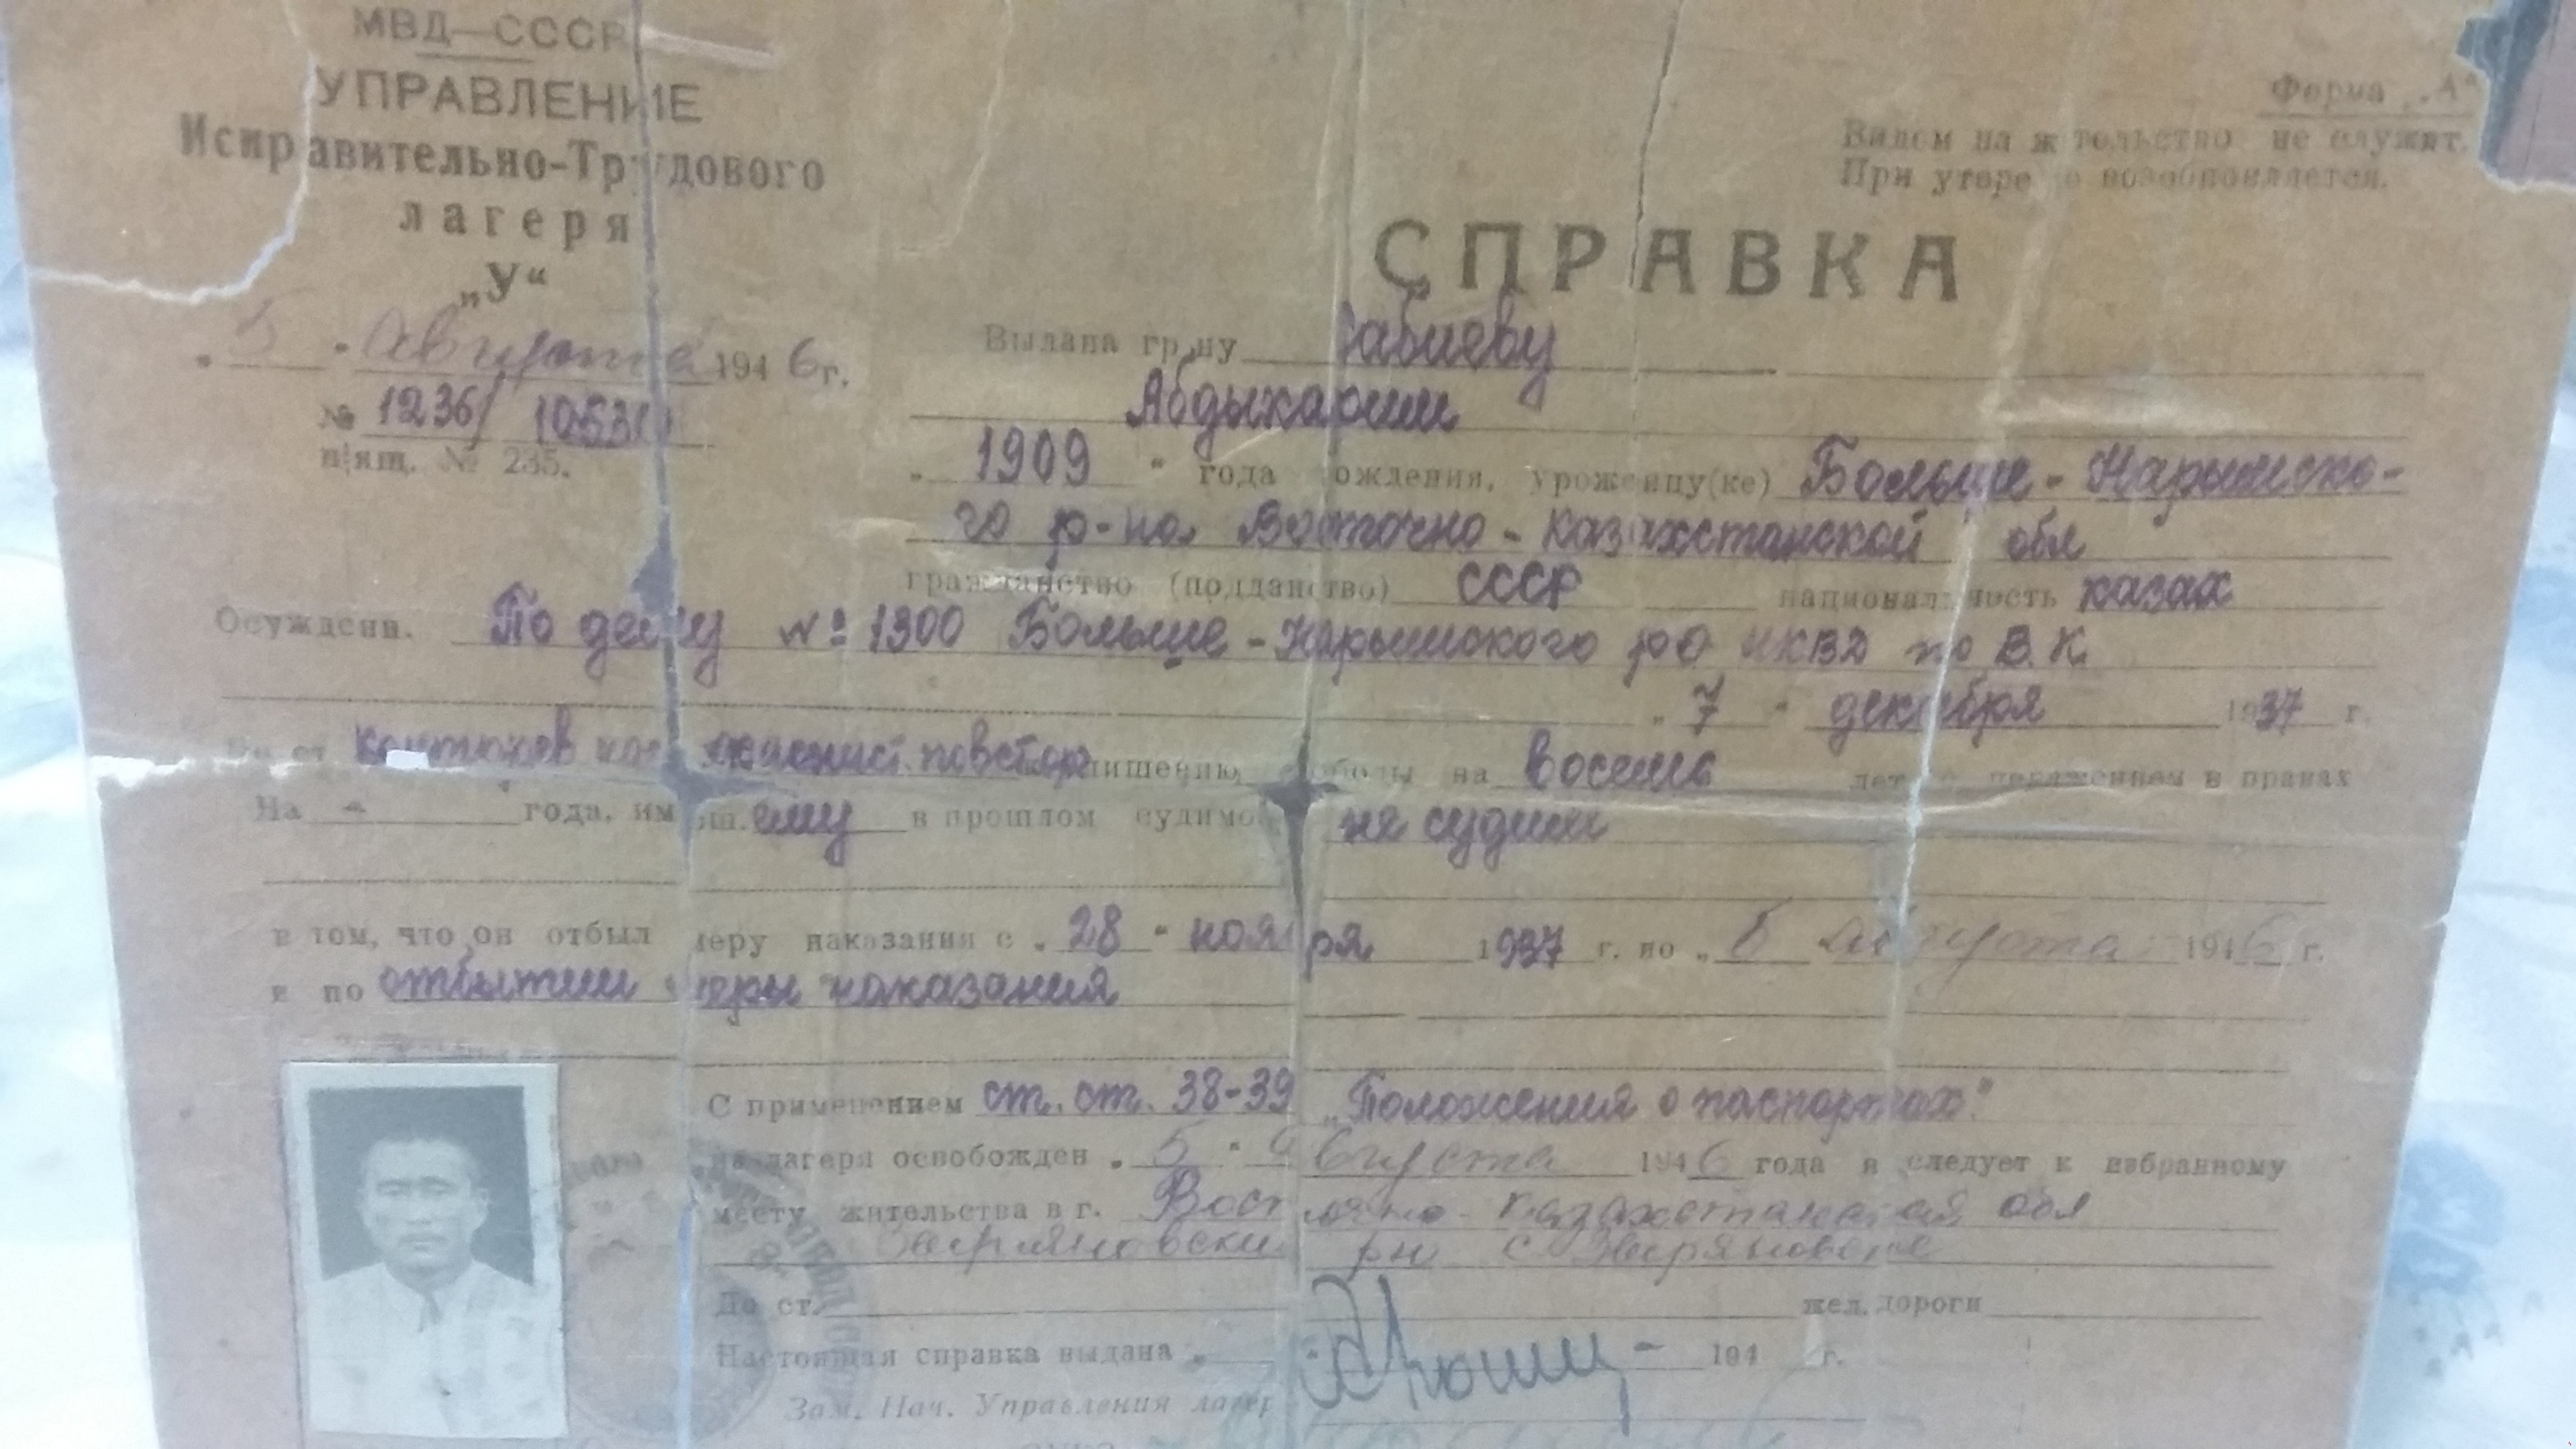 МВД—СССР
УПРАВЛЕНИЕ
Исправительно-Трудового
лагеря
„У“
Форма „А“
Видом на жительство не служит.
При утере не возобновляется.
СПРАВКА
„ 5 “ августа 1946 г.
№ 1236/ 10531
п/ящ. № 235.
Выдана гр-ну абиеву
Абдыкарим
„ 1909 “ года рождения, уроженцу(ке) Больше-Нарымско-
го р-на Восточно-Казахстанской обл
гражданство (подданство) СССР национальность казах
Осужденн. По делу № 1300 Больше-Нарымского РО НКВД по В.К.
„ 7 “ декабря 1937 г.
повстан лишению свободы на восемь лет с поражением в правах
На - года, имевш.ему в прошлом судимо не судим
в том, что он отбыл меру наказания с „ 28 “ ноября 1937 г. по „ 5 августа 1946 г.
и по отбытии меры наказания
С применением ст. ст. 38-39 „Положения о паспортах“
из лагеря освобожден „ 5 “ августа 1946 года и следует к избранному
месту жительства в г. Восточно-Казахстанская обл
Зыряновски рн с Зыряновске
До ст. жел. дороги
Настоящая справка выдана „ “ 194 г.
Зам. Нач. Управления лагер